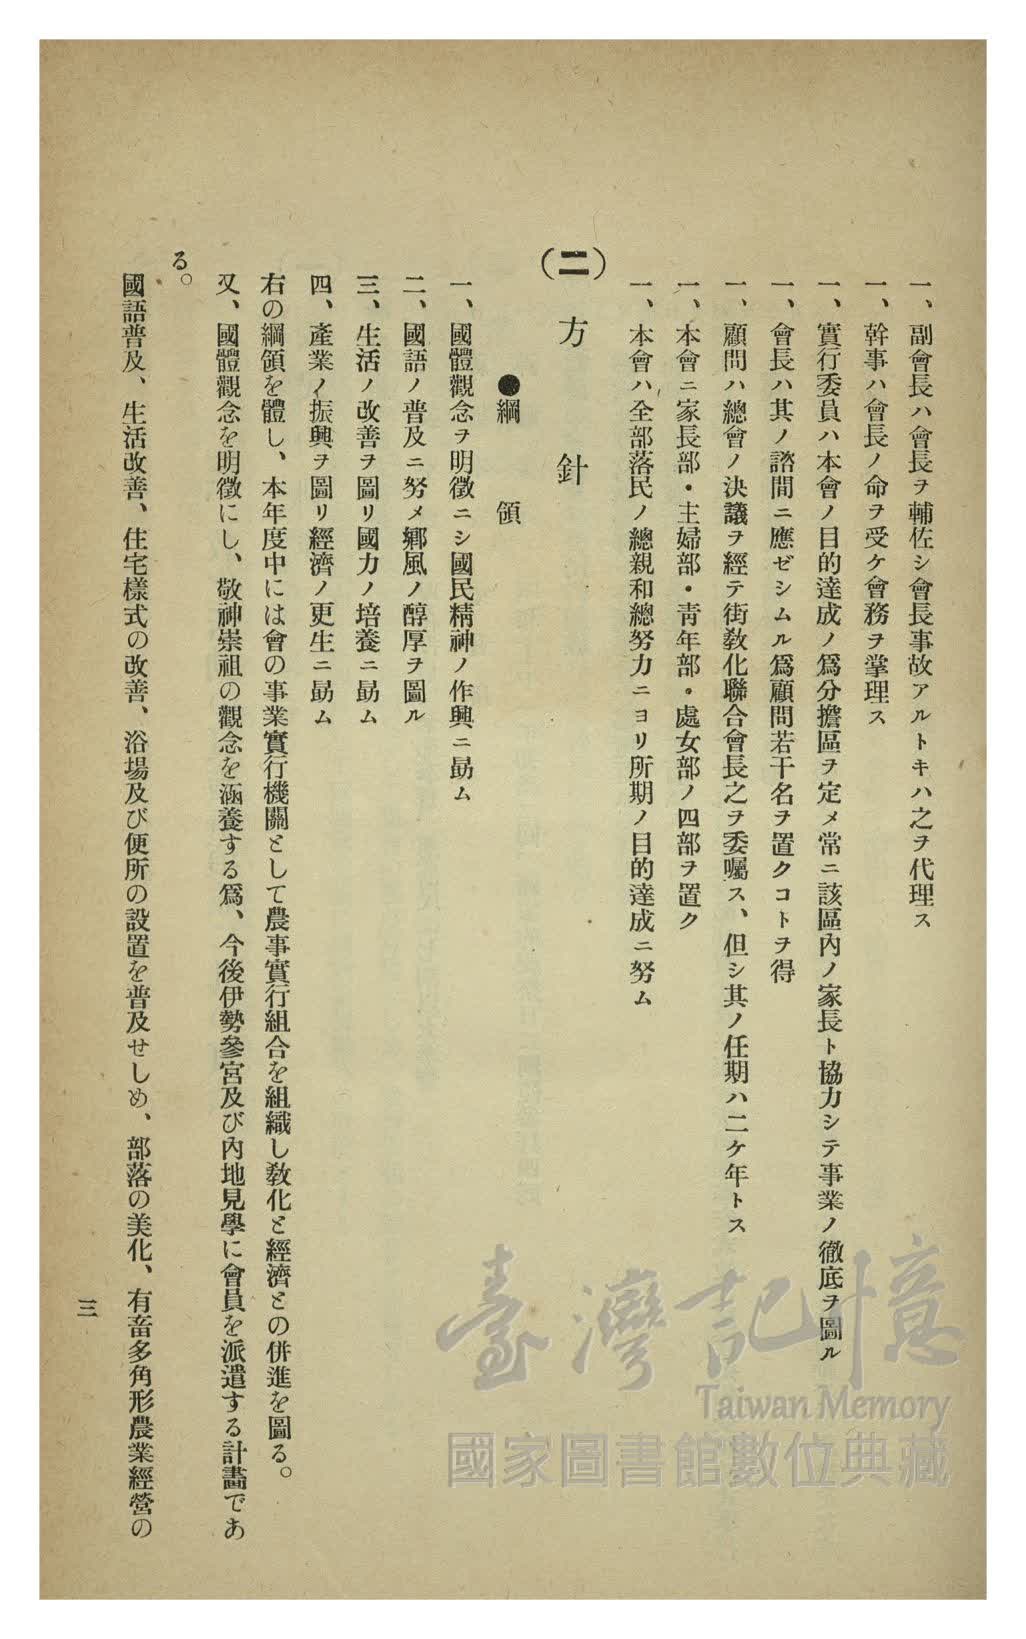 一、副會長ハ會長ヲ輔佐シ會長事故アルトキハ之ヲ代理ス
一、幹事ハ會長ノ命ヲ受ケ會務ヲ掌理ス
一、實行委員ハ本會ノ目的達成ノ爲分擔區ヲ定メ常ニ該區內ノ家長ト協力シテ事業ノ徹底ヲ圖ル
一、會長ハ其ノ諮問ニ應ゼシムル爲顧問若干名ヲ置クコトヲ得
一、顧問ハ總會ノ決議ヲ經テ街敎化聯合會長之ヲ委囑ス、但シ其ノ任期ハ二ケ年トス
一、本會ニ家長部・主婦部・靑年部・處女部ノ四部ヲ置ク
一、本會ハ全部落民ノ總親和總努力ニヨリ所期ノ目的達成ニ努ム
(二) 方針
●綱領
一、國體觀念ヲ明徵ニシ國民精神ノ作興ニ勗ム
二、國語ノ普及ニ努メ鄕風ノ醇厚ヲ圖ル
三、生活ノ改善ヲ圖リ國力ノ培養ニ勗ム
四、產業ノ振興ヲ圖リ經濟ノ更生ニ勗ム
右の綱領を體し、本年度中には會の事業實行機關として農事實行組合を組織し敎化と經濟との併進を圖る。
又、國體觀念を明徵にし、敬神崇祖の觀念を涵養する爲、今後伊勢參宮及び內地見學に會員を派遣する計畫であ
る。
國語普及、生活改善、住宅樣式の改善、浴場及び便所の設置を普及せしめ、部落の美化、有畜多角形農業經營の
三
臺灣記憶
Taiwan Memory
國家圖書館數位典藏